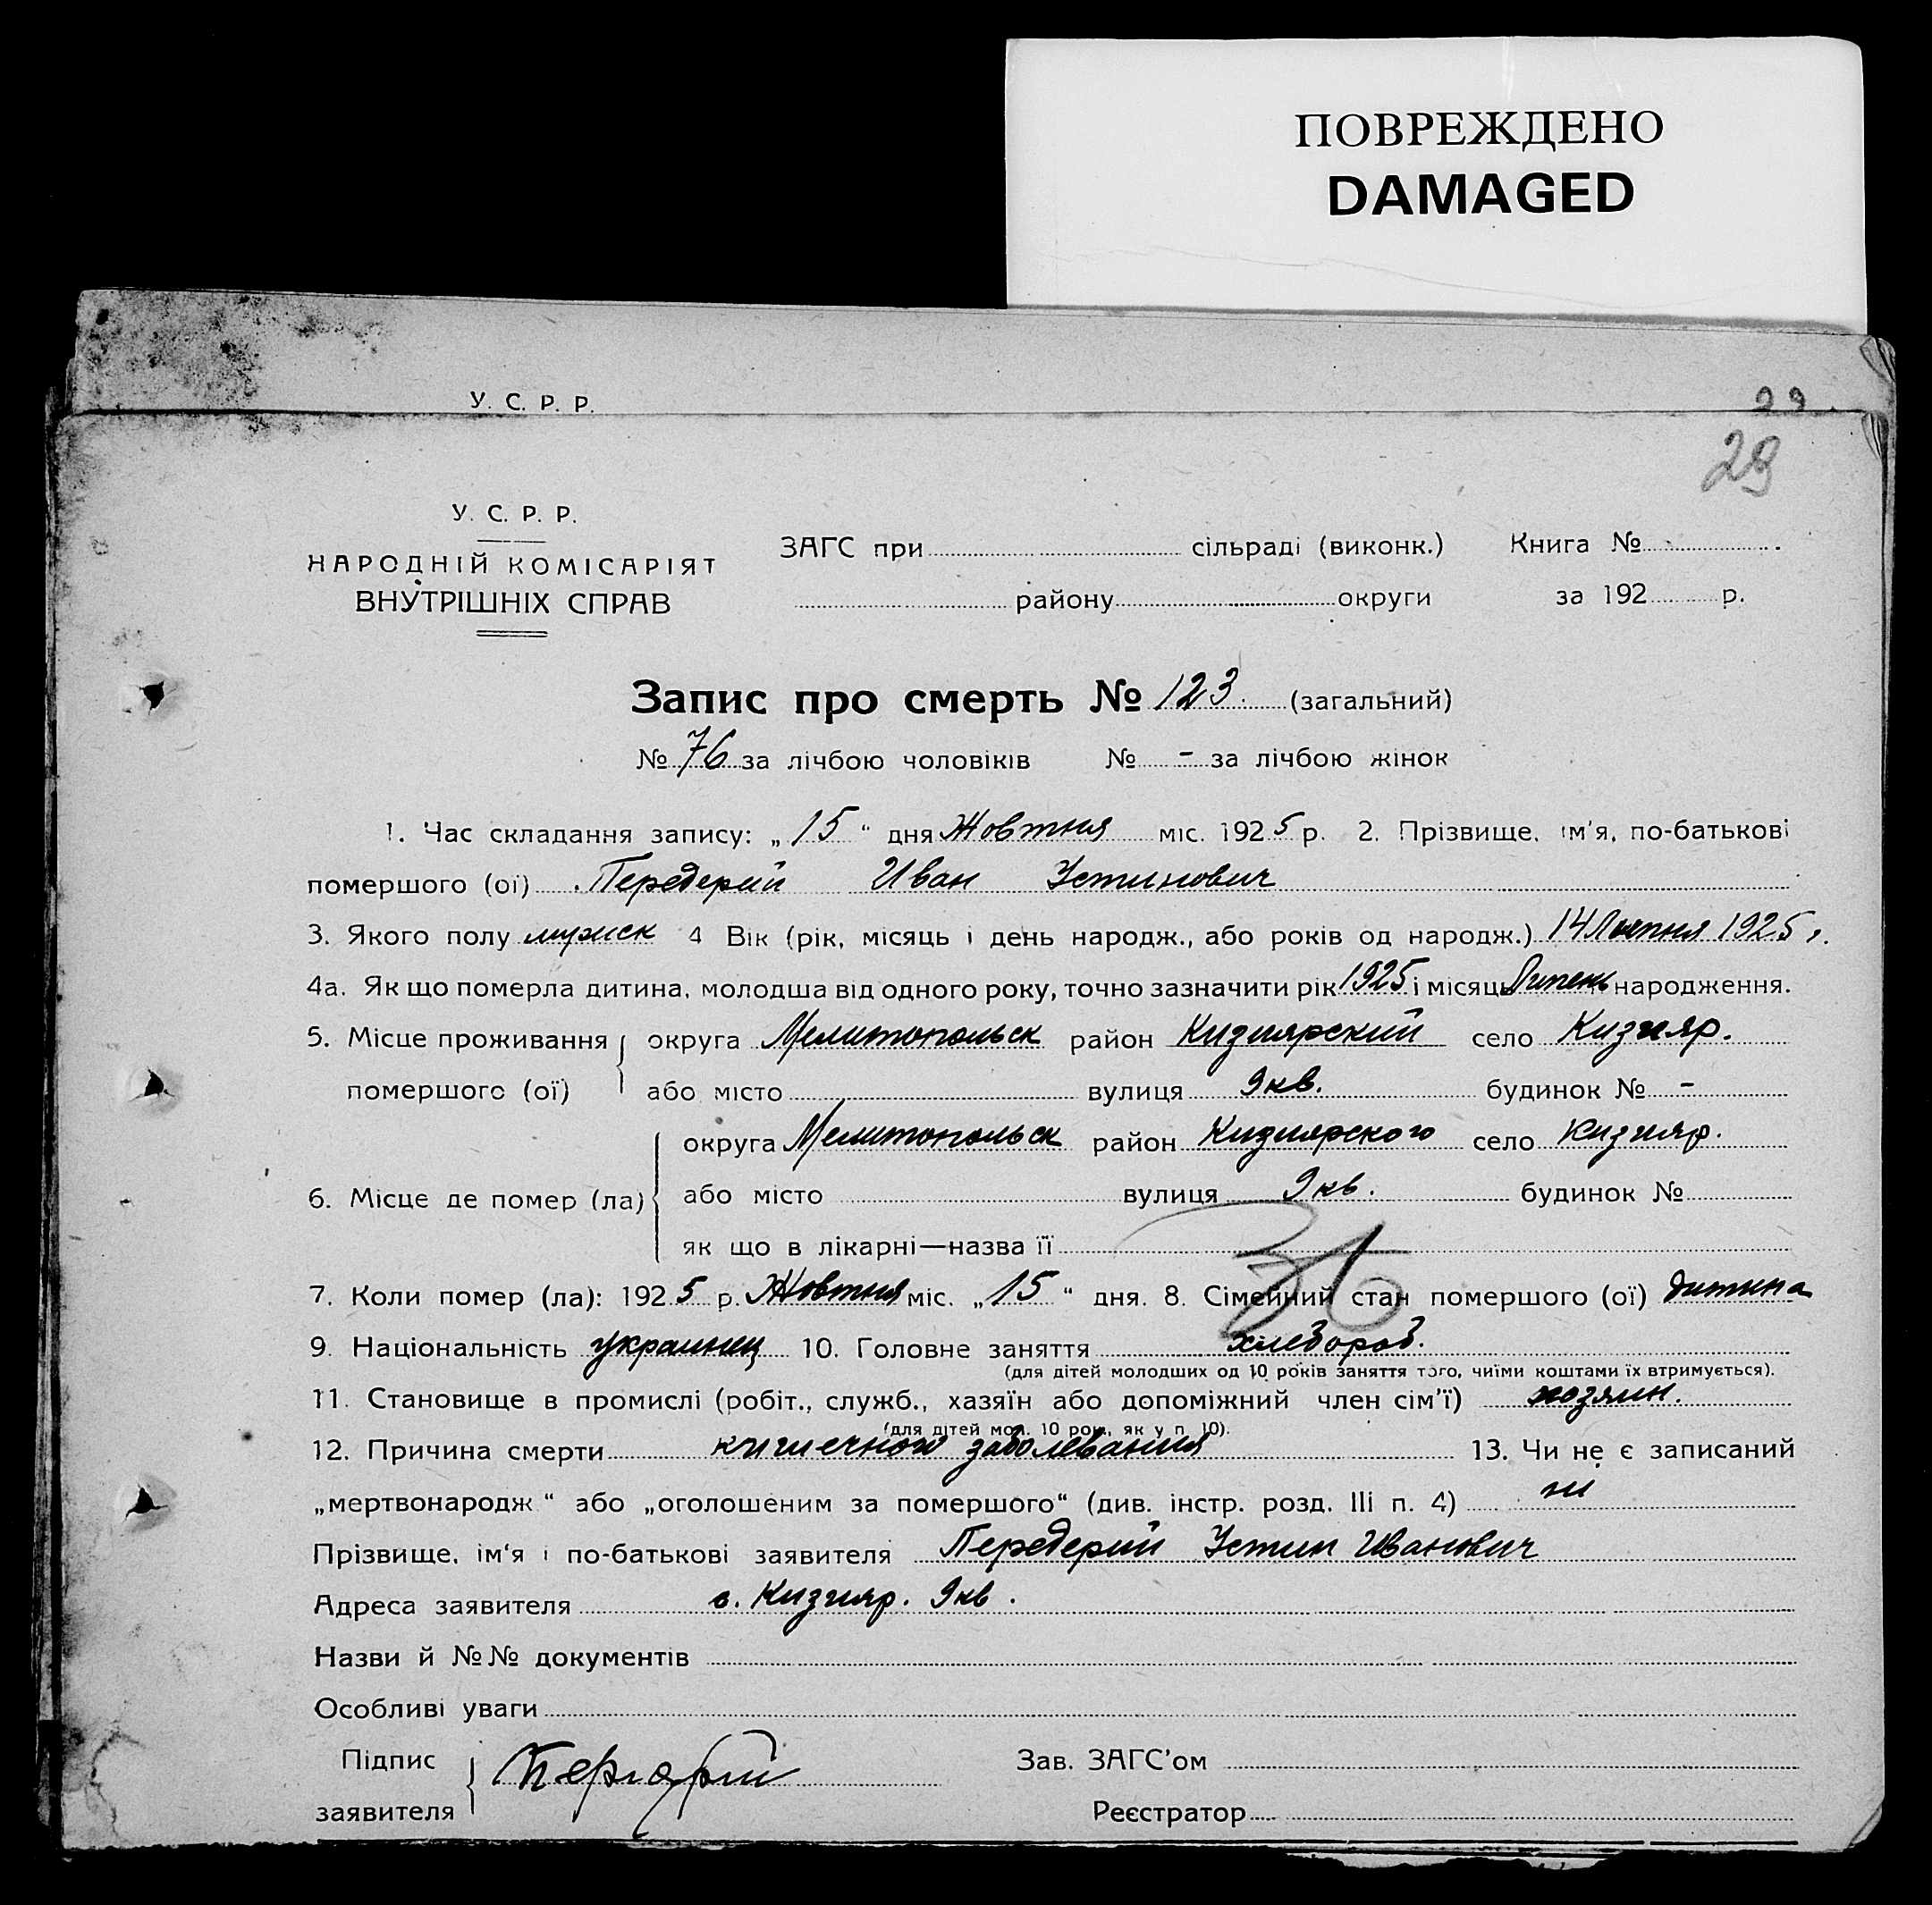 ПОВРЕЖДЕНО
DAMAGED
У. С. Р. Р.
29
У. С. Р. Р.
НАРОДНІЙ КОМІСАРІЯТ
ВНУТРІШНІХ СПРАВ
ЗАГС при сільраді (виконк.) Книга №
району округи за 192 р.
Запис про смерть № 123. (загальний)
№ 76 за лічбою чоловіків № - за лічбою жінок
1. Час складання запису: „15“ дня Жовтня міс. 1925 р. 2. Прізвище, ім'я, по-батькові
помершого (ої) Передерий Иван Устинович
3. Якого полу мужск 4 Вік (рік, місяць і день народж., або років од народж.) 14 Липня 1925 г.
4а. Як що померла дитина, молодша від одного року, точно зазначити рік 1925 і місяць Липень народження.
5. Місце проживання округа Мелитопольск район Кизиярский село Кизияр.
помершого (ої) або місто вулиця 9 кв. будинок № -
округа Мелитопольск район Кизиярского село Кизияр.
6. Місце де помер (ла) або місто вулиця 9 кв. будинок №
як що в лікарні—назва її
36
7. Коли помер (ла): 1925 р. Жовтня міс. „15“ дня. 8. Сімейний стан помершого (ої) дитина
9. Національність украинец 10. Головне заняття хлебороб.
(для дітей молодших од 10 років заняття того, чиїми коштами їх втримується).
11. Становище в промислі (робіт., служб., хазяїн або допоміжний член сім'ї) хозяин.
(для дітей мол. 10 рок., як у п. 10).
12. Причина смерти кишечного заболевания 13. Чи не є записаний
„мертвонародж“ або „оголошеним за помершого“ (див. інстр. розд. III п. 4) ні
Прізвище, ім'я і по-батькові заявителя Передерий Устин Иванович
Адреса заявителя с. Кизияр. 9 кв.
Назви й №№ документів
Особливі уваги
Підпис Зав. ЗАГС'ом
заявителя Реєстратор